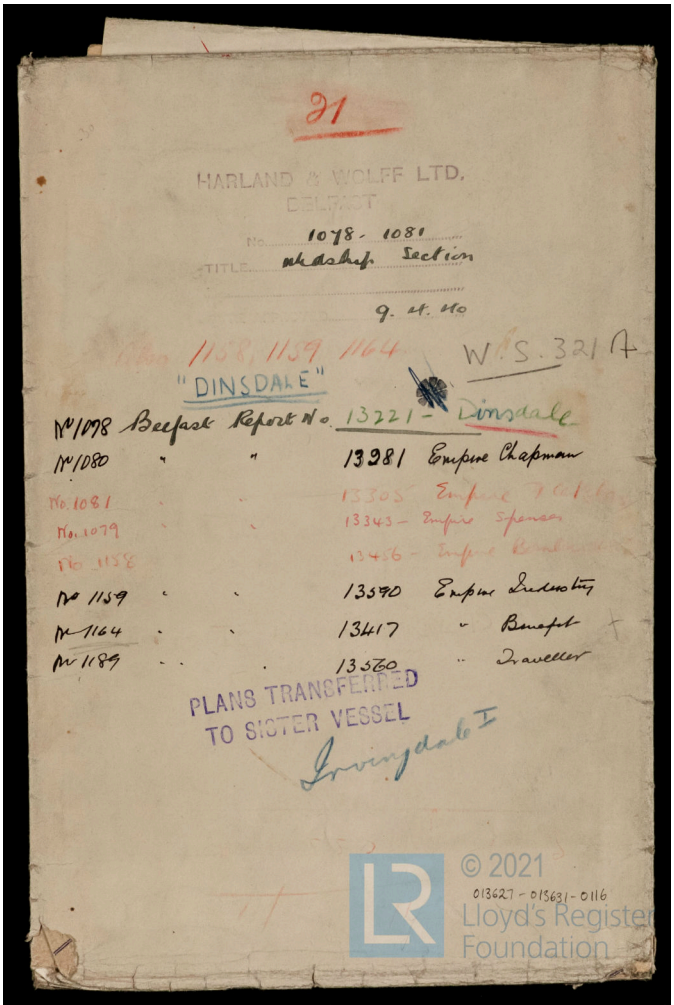 21
HARLAND & WOLFF LTD.
BELFAST
No. 1078 - 1081
TITLE Midship Section
W.S. 321 A
Also 1158, 1159 1164
"DINSDALE"
No 1078 Belfast Report No. 13221 - Dinsdale
No 1080 " " 13281 Empire Chapman
No. 1081 " " 13303 Empire
No. 1079 " " 13343 - Empire Spenser
No 1158 13456 - Empire
No 1159 " " 13590 Empire Industry
No 1164 " " 13417 " Benefit
No 1189 " " 13560 " Traveller
PLANS TRANSFERRED
TO SISTER VESSEL
Irvingdale I
© 2021
013627-013631-0116
LR
Lloyd's Register
Foundation